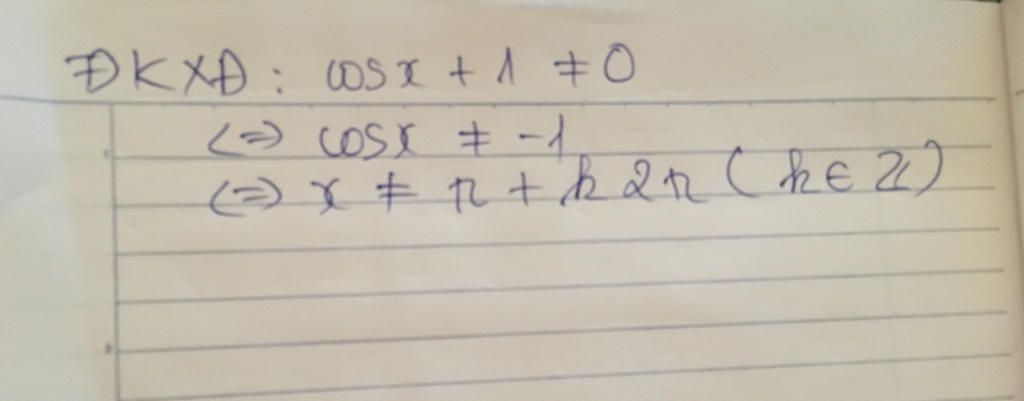 ĐKXĐ: cosx + 1 ≠ 0
<=> cosx ≠ -1
<=> x ≠ π + k2π (k ∈ Z)